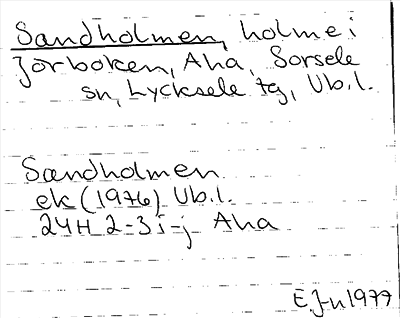 Sandholmen, holme i
Jorboken, Aha, Sorsele
sn, Lycksele tg, Vb.l.
Sandholmen
ek (1976) Vb.l.
24H 2-3 i-j Aha
EJ-n 1977